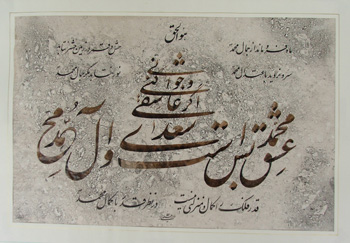 هوالحق
ماه فرو ماند از جمال محمد
سرو نروید به اعتدال محمد
شمس و قمر در زمین حشر نتابد
نور نتابد مگر جمال محمد
سعدی اگر عاشقی کنی و جوانی
عشق محمد بس است و آل محمد
قدر فلک را کمال و منزلتی نیست
در نظر قدر با کمال محمد